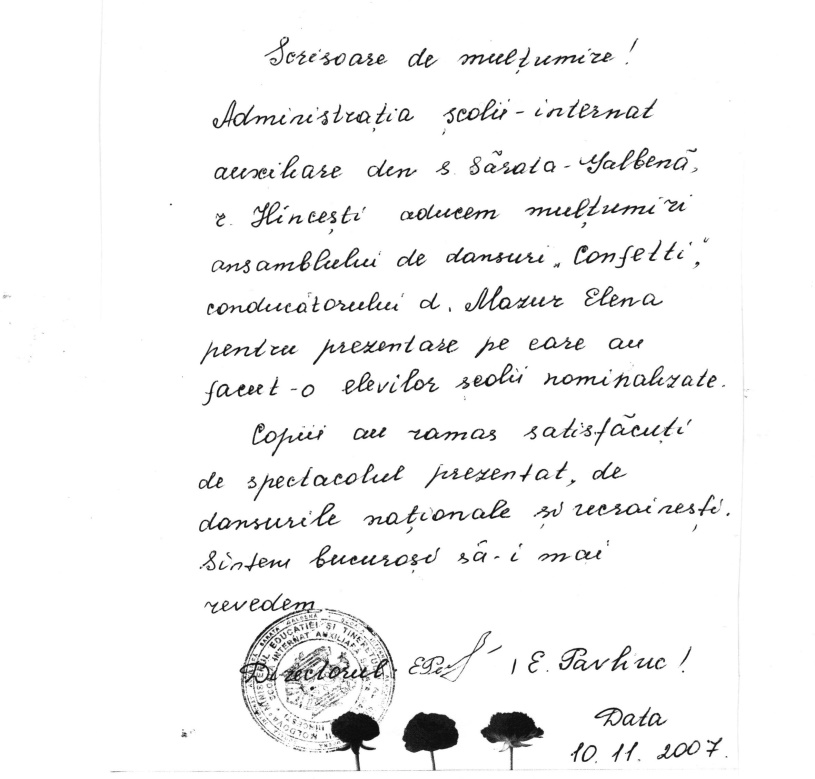 Scrisoare de mulțumire!
Administrația școlii-internat
auxiliare din s. Sărata-Galbenă,
r. Hîncești aducem mulțumiri
ansamblului de dansuri „Confetti",
conducătorului d. Mazur Elena
pentru prezentare pe care au
facut-o elevilor școlii nominalizate.
Copiii au ramas satisfăcuți
de spectacolul prezentat, de
dansurile naționale și ucrainești.
Sintem bucuroși să-i mai
revedem
Directorul: /E. Pavliuc/
Data
10.11.2007.